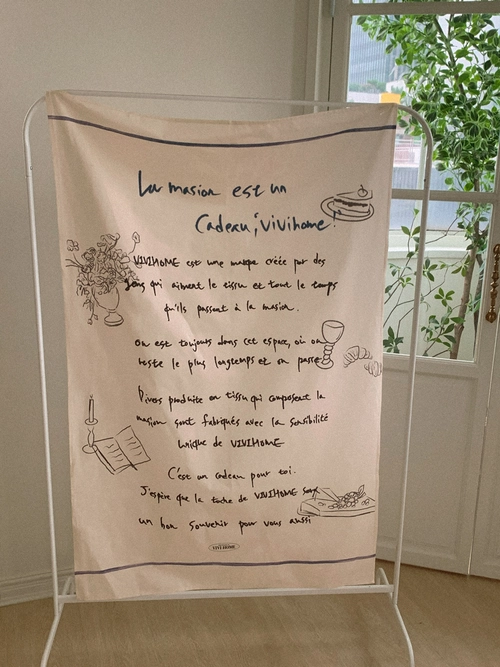 La masion est un
Cadeau, vivihome!
VIVIHOME est une marque créée par des
gens qui aiment le tissu et tout le temps
qu'ils passent à la masion.
on est toujours dans cet espace, où on
reste le plus longtemps et on passe
Divers produits en tissu qui composent la
masion sont fabriqués avec la sensibilité
unique de VIVIHOME
C'est un cadeau pour toi.
J'espère que la touche de VIVIHOME sera
un bon souvenir pour vous aussi
VIVIHOME